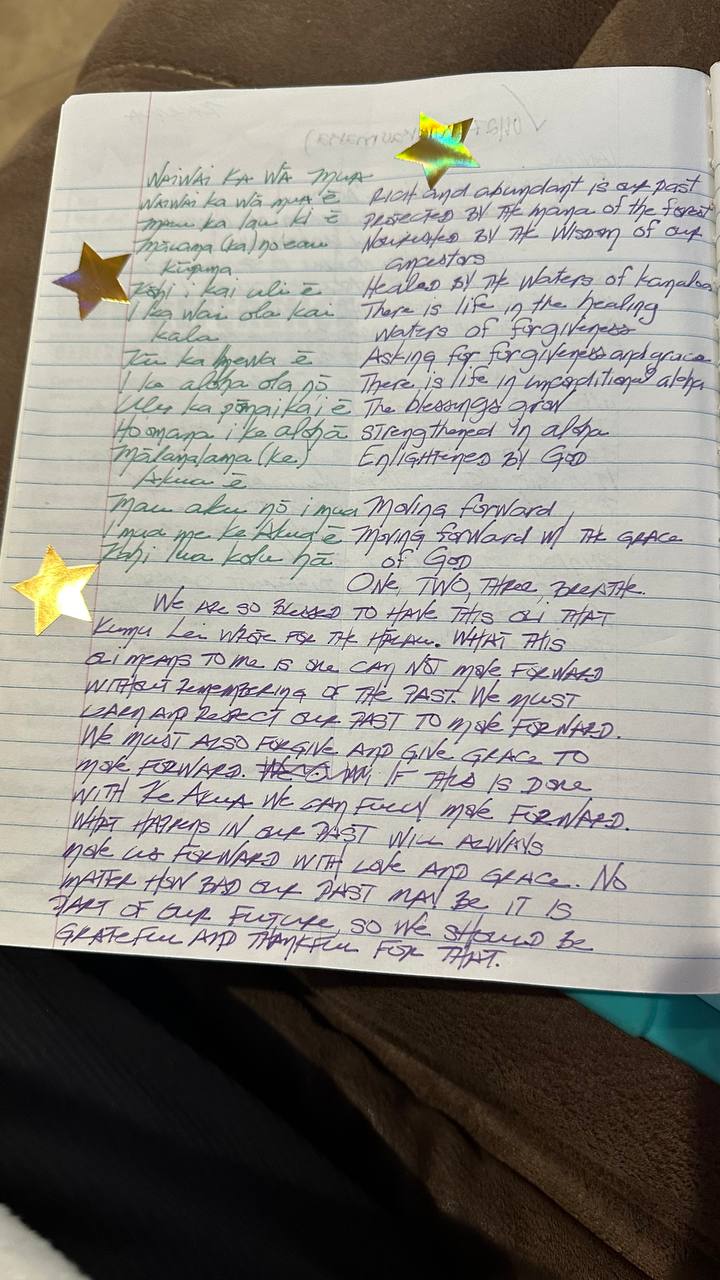 WAIWAI KA WĀ MUA
WAIWAI ka wā mua ē Rich and abundant is our past
mau ka lau ki ē PROTECTED BY THE mana of the forest
mālama (ka) no eau NOURISHED BY THE WISDOM OF our
Kūpuna ancestors
i kai uli ē HEALED BY THE WATERS of Kanaloa
I ka wai ola kai There is life in the healing
kala waters of forgiveness
ka ē Asking for forgiveness and grace
I ke aloha ola nō There is life in unconditional aloha
Ulu ka ē The blessings grow
Hoomana i ke alohā strengthened in aloha
Mālamalama (ke) ENLIGHTENED BY GOD
Akua ē
Mau aku nō i mua Moving forward
I mua me ke Akua ē Moving forward w/ THE GRACE
lua kolu hā of GOD
ONE, TWO, THREE, BREATHE.
WE ARE SO BLESSED TO HAVE THIS Oli THAT
Kumu Lei WROTE FOR THE HALAU. WHAT THIS
Oli MEANS TO ME IS ONE CAN NOT MOVE FORWARD
WITHOUT REMEMBERING OF THE PAST. WE MUST
LEARN AND RESPECT OUR PAST TO MOVE FORWARD.
WE MUST ALSO FORGIVE AND GIVE GRACE TO
MOVE FORWARD. IF THIS IS DONE
WITH Ke AKUA WE CAN FULLY MOVE FORWARD.
WHAT HAPPENS IN OUR PAST WILL ALWAYS
MOVE US FORWARD WITH LOVE AND GRACE. NO
MATER HOW BAD OUR PAST MAY BE IT IS
PART OF OUR FUTURE, SO WE SHOULD BE
GRATEFUL AND THANKFUL FOR THAT.